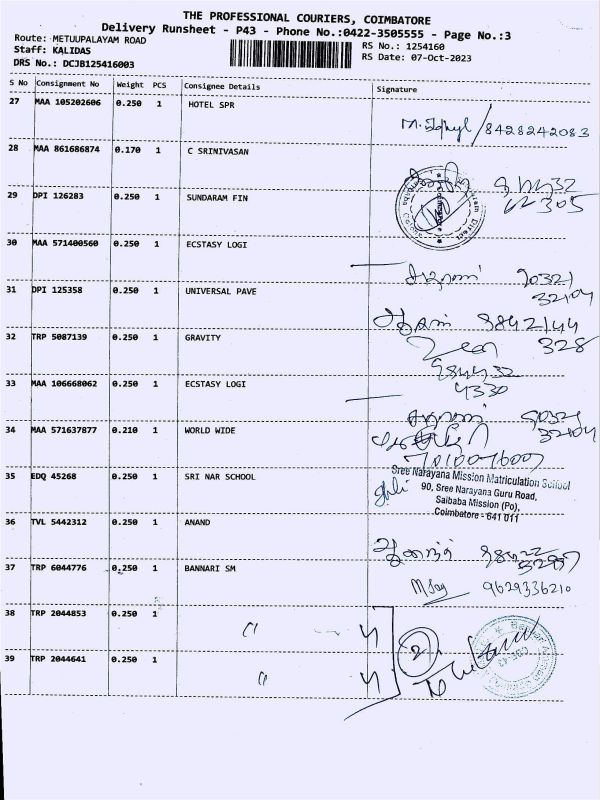 THE PROFESSIONAL COURIERS, COIMBATORE
Delivery Runsheet - P43 - Phone No.:0422-3505555 - Page No.:3
Route: METUUPALAYAM ROAD
RS No.: 1254160
Staff: KALIDAS
RS Date: 07-Oct-2023
DRS No.: DCJB125416003
S No Consignment No Weight PCS Consignee Details Signature
27 MAA 105202606 0.250 1 HOTEL SPR
8428242083
28 MAA 861686874 0.170 1 C SRINIVASAN
29 DPI 126283 0.250 1 SUNDARAM FIN
30 MAA 571400560 0.250 1 ECSTASY LOGI
90321
32104
31 DPI 125358 0.250 1 UNIVERSAL PAVE
9842144
328
32 TRP 5087139 0.250 1 GRAVITY
984432
4330
33 MAA 106668062 0.250 1 ECSTASY LOGI
90321
32104
34 MAA 571637877 0.210 1 WORLD WIDE
35 EDQ 45268 0.250 1 SRI NAR SCHOOL
Sree Narayana Mission Matriculation School
90, Sree Narayana Guru Road,
Saibaba Mission (Po),
Coimbatore - 641 011
36 TVL 5442312 0.250 1 ANAND
ஆனந்த்
37 TRP 6044776 0.250 1 BANNARI SM
9629336210
38 TRP 2044853 0.250 1 " 4
2
39 TRP 2044641 0.250 1 " 4